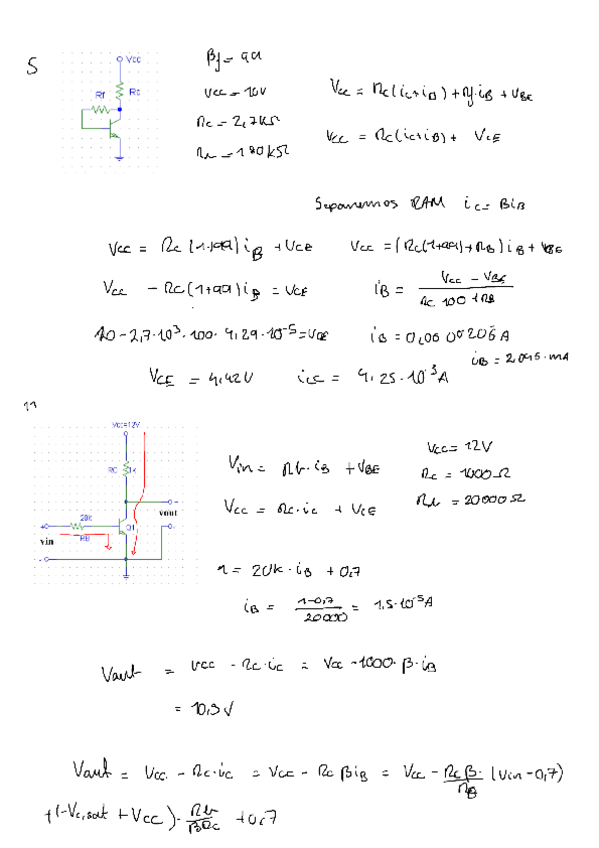 5
Vcc
Rf
Rc
βf = 99
Vcc = 10V
Rc = 2,7kΩ
Rb = 180kΩ
Vcc = Rc(ic+iB) + Rf·iB + VBE
Vcc = Rc(ic+iB) + VCE
Suponemos RAM ic = βiB
Vcc = Rc(1+99)iB + VCE
Vcc = (Rc(1+99)+RB)iB + VBE
Vcc - Rc(1+99)iB = VCE
iB = Vcc - VBE / Rc·100 + RB
10 - 2,7·10³·100·
VCE = 4,42V
ic = 4,25·10⁻³A
11
Vcc=12V
RC
1k
20k
RB
Q1
vin
vout
Vin = Rb·iB + VBE
Vcc = Rc·ic + VCE
Vcc = 12V
Rc = 1000Ω
Rb = 20000Ω
1 = 20k·iB + 0,7
iB = 1-0,7 / 20000 = 1,5·10⁻⁵A
Vout = Vcc - Rc·ic = Vcc - 1000·β·iB
= 10,5V
Vout = Vcc - Rc·ic = Vcc - RcβiB = Vcc - Rcβ/RB · (Vin-0,7)
+(-Vc,sat + Vcc)·Rb/βRc + 0,7